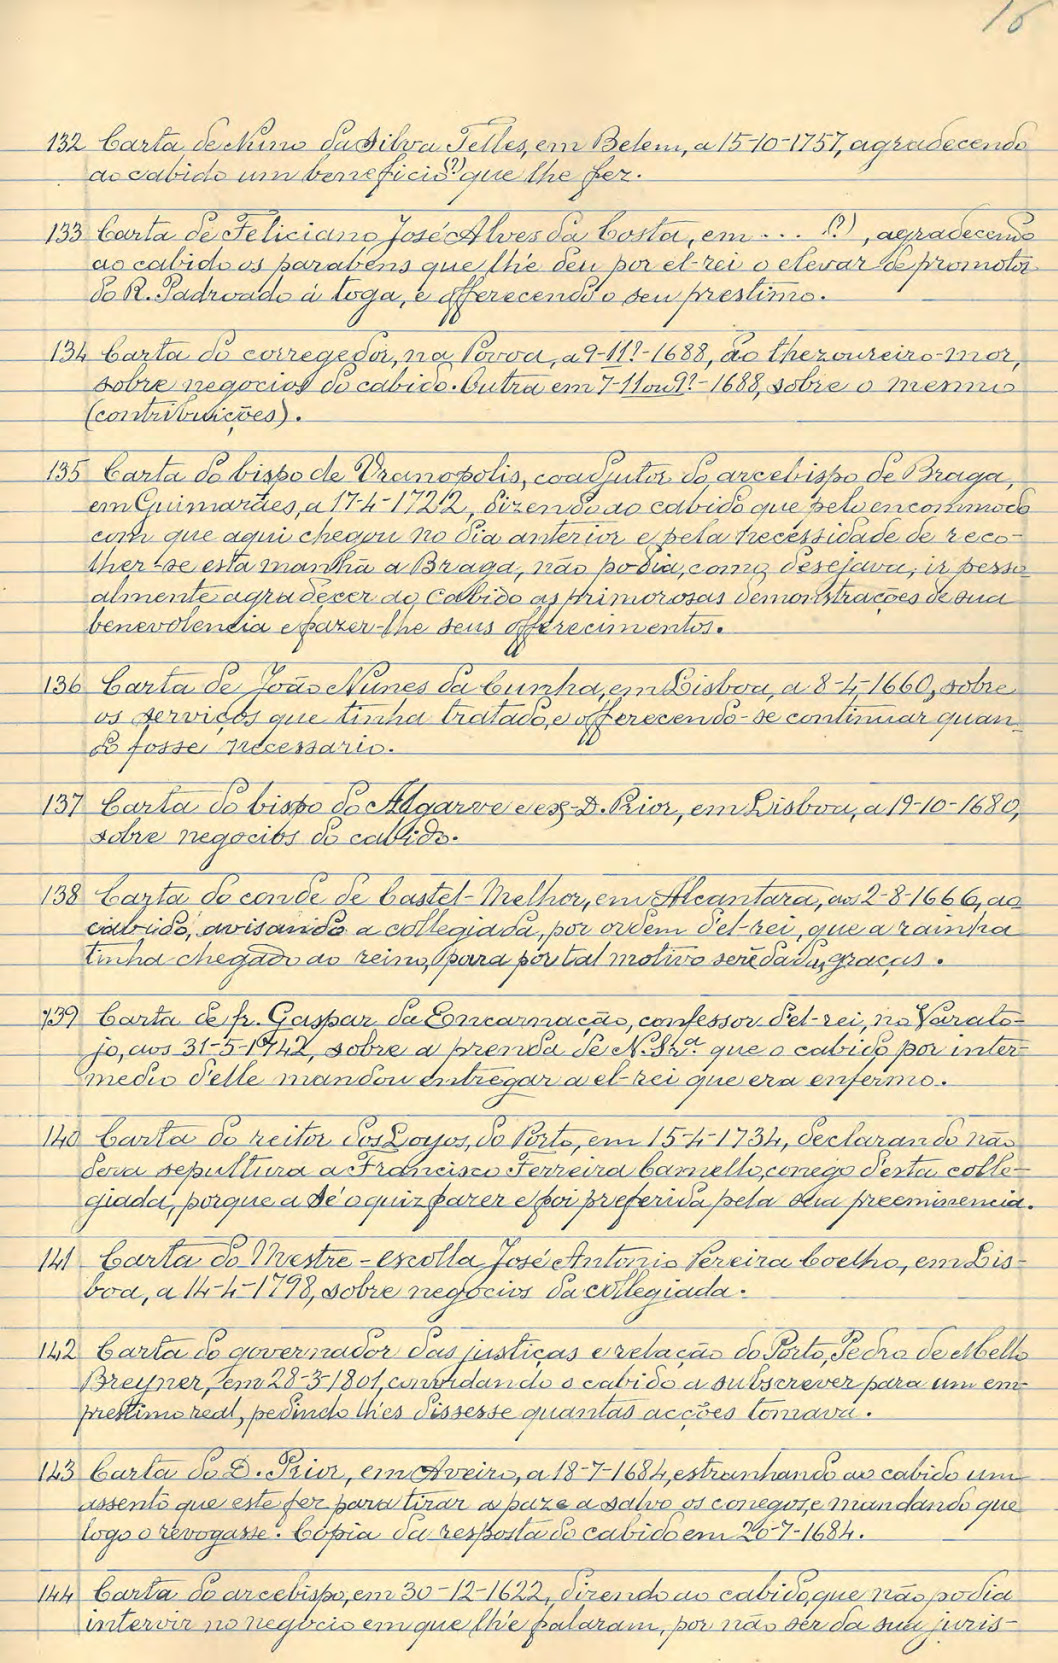 16
132 Carta de Nuno da Silva Telles, em Belem, a 15-10-1757, agradecendo
ao cabido um beneficio (?) que lhe fez.
133 Carta de Feliciano José Alves da Costa, em ... (?), agradecendo
ao cabido os parabens que lh'e deu por el-rei o elevar de promotor
do R. Padroado á toga, e offerecendo o seu prestimo.
134 Carta do corregedor, na Povoa, a 9-11?-1688, ao thezoureiro-mor,
sobre negocios do cabido. Outra em 7-11 ou 9?-1688, sobre o mesmo
(contribuições).
135 Carta do bispo de Uranopolis, coadjutor do arcebispo de Braga,
em Guimarães, a 17-4-1722, dizendo ao cabido que pelo encommodo
com que aqui chegou no dia anterior e pela necessidade de reco-
lher-se esta manhã a Braga, não podia, como desejava, ir pesso-
almente agradecer ao Cabido as primorosas demonstrações de sua
benevolencia e fazer-lhe seus offerecimentos.
136 Carta de João Nunes da Cunha, em Lisboa, a 8-4-1660, sobre
os serviços que tinha tratado, e offerecendo-se continuar quan-
do fosse necessario.
137 Carta do bispo do Algarve e ex-D. Prior, em Lisboa, a 19-10-1680,
sobre negocios do cabido.
138 Carta do conde de Castel-Melhor, em Alcantara, aos 2-8-1666, ao
cabido, avisando a collegiada, por ordem d'el-rei, que a rainha
tinha chegado ao reino, para por tal motivo serẽ dadas graças.
139 Carta de fr. Gaspar da Encarnação, confessor d'el-rei, no Varato-
jo, aos 31-5-1742, sobre a prenda de N. Srª. que o cabido por inter-
medio d'elle mandou entregar a el-rei que era enfermo.
140 Carta do reitor dos Loyos, do Porto, em 15-4-1734, declarando não
dera sepultura a Francisco Ferreira Camello, conego d'esta colle-
giada, porque a Sé o quiz fazer e foi preferida pela sua preeminencia.
141 Carta do Mestre-escolla José Antonio Pereira Coelho, em Lis-
boa, a 14-4-1798, sobre negocios da collegiada.
142 Carta do governador das justiças e relação do Porto, Pedro de Mello
Breyner, em 28-3-1801, convidando o cabido a subscrever para um em-
prestimo real, pedindo lh'es dissesse quantas acções tomava.
143 Carta do D. Prior, em Aveiro, a 18-7-1684, estranhando ao cabido um
assento que este fez para tirar a paz e a salvo os conegos, e mandando que
logo o revogasse. Copia da resposta do cabido em 20-7-1684.
144 Carta do arcebispo, em 30-12-1622, dizendo ao cabido, que não podia
intervir no negocio em que lh'e falaram, por não ser da sua juris-